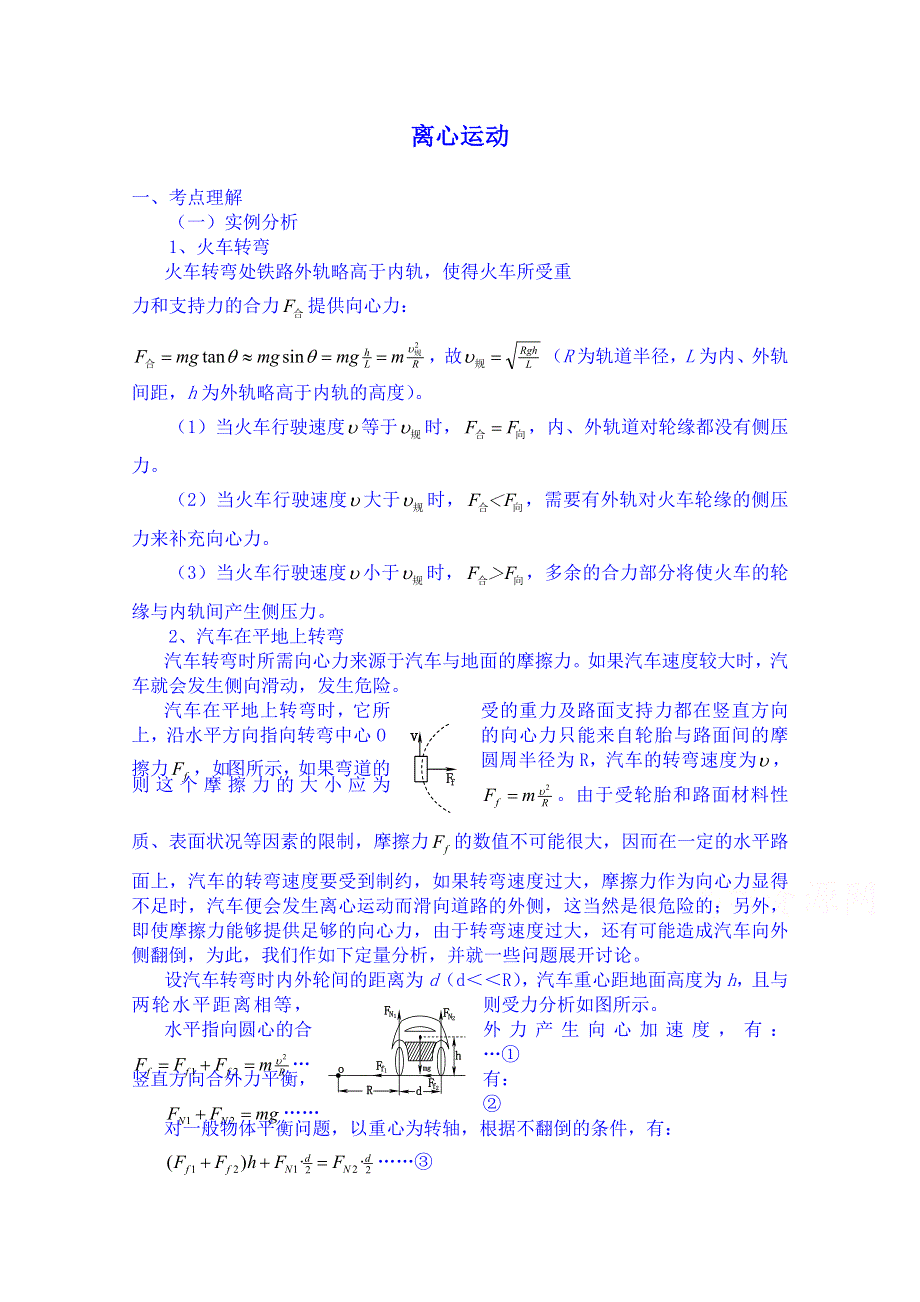 离心运动
一、考点理解
（一）实例分析
1、火车转弯
火车转弯处铁路外轨略高于内轨，使得火车所受重
力和支持力的合力F合提供向心力：
F合=mgtanθ≈mgsinθ=mg h/L=m υ规²/R，故υ规=√(Rgh/L)（R为轨道半径，L为内、外轨
间距，h为外轨略高于内轨的高度）。
（1）当火车行驶速度υ等于υ规时，F合=F向，内、外轨道对轮缘都没有侧压
力。
（2）当火车行驶速度υ大于υ规时，F合<F向，需要有外轨对火车轮缘的侧压
力来补充向心力。
（3）当火车行驶速度υ小于υ规时，F合>F向，多余的合力部分将使火车的轮
缘与内轨间产生侧压力。
2、汽车在平地上转弯
汽车转弯时所需向心力来源于汽车与地面的摩擦力。如果汽车速度较大时，汽
车就会发生侧向滑动，发生危险。
汽车在平地上转弯时，它所受的重力及路面支持力都在竖直方向
上，沿水平方向指向转弯中心O的向心力只能来自轮胎与路面间的摩
擦力Ff，如图所示，如果弯道的圆周半径为R，汽车的转弯速度为υ，
则这个摩擦力的大小应为Ff=m υ²/R。由于受轮胎和路面材料性
V
Ff
质、表面状况等因素的限制，摩擦力Ff的数值不可能很大，因而在一定的水平路
面上，汽车的转弯速度要受到制约，如果转弯速度过大，摩擦力作为向心力显得
不足时，汽车便会发生离心运动而滑向道路的外侧，这当然是很危险的；另外，
即使摩擦力能够提供足够的向心力，由于转弯速度过大，还有可能造成汽车向外
侧翻倒，为此，我们作如下定量分析，并就一些问题展开讨论。
设汽车转弯时内外轮间的距离为d（d＜＜R），汽车重心距地面高度为h，且与
两轮水平距离相等，则受力分析如图所示。
水平指向圆心的合外力产生向心加速度，有：
Ff=Ff1+Ff2=m υ²/R……①
竖直方向合外力平衡，有：
FN1+FN2=mg……②
FN1
FN2
h
o
Ff1
mg
Ff2
R
d
对一般物体平衡问题，以重心为转轴，根据不翻倒的条件，有：
(Ff1+Ff2)h+FN1·d/2=FN2·d/2……③